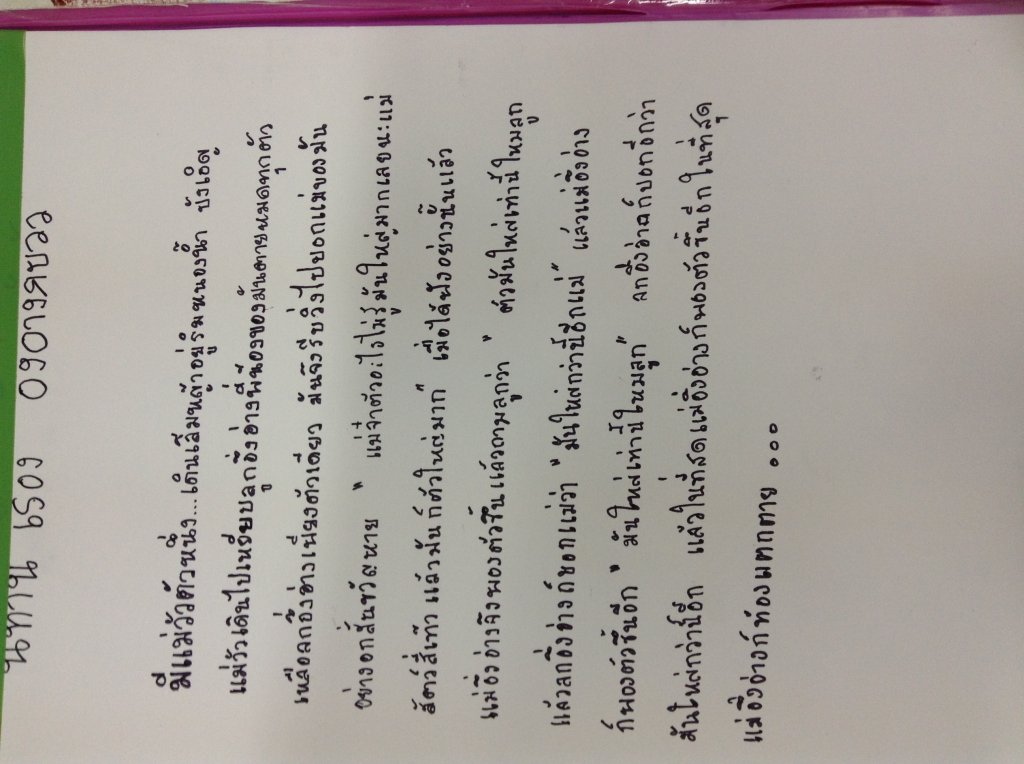 นิทาน เรื่อง อึ่งอ่างกับวัว
มีแม่วัวตัวหนึ่ง...เดินเล็มหญ้าอยู่ริมหนองน้ำ บังเอิญ
แม่วัวเดินไปเหยียบลูกอึ่งอ่างพี่น้องของมันตายหมดทุกตัว
เหลือลูกอึ่งอ่างเพียงตัวเดียว มันจึงรีบวิ่งไปบอกแม่ของมัน
อย่างอกสั่นขวัญหาย " แม่จ๋าตัวอะไรไม่รู้มันใหญ่มากเลยนะแม่
สัตว์สี่เท้า แล้วมันก็ตัวใหญ่มาก" เมื่อได้ฟังอย่างนั้นแล้ว
แม่อึ่งอ่างจึงพองตัวขึ้นแล้วถามลูกว่า " ตัวมันใหญ่เท่านี้ไหมลูก
แล้วลูกอึ่งอ่างก็บอกแม่ว่า "มันใหญ่กว่านี้อีกแม่" แล้วแม่อึ่งอ่าง
ก็พองตัวขึ้นอีก " มันใหญ่เท่านี้ไหมลูก" ลูกอึ่งอ่างก็บอกอีกว่า
มันใหญ่กว่านี้อีก แล้วในที่สุดแม่อึ่งอ่างก็พองตัวขึ้นอีก ในที่สุด
แม่อึ่งอ่างก็ท้องแตกตาย ...